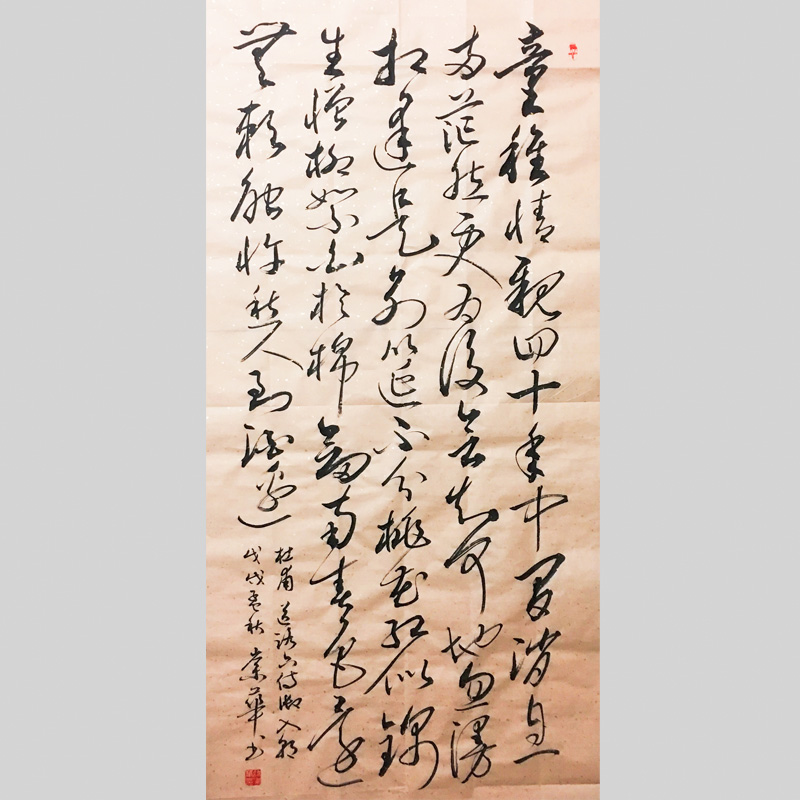 童稚情親四十年中間消息
两茫然更为後會知何地忽漫
相逢是别筵不分桃花红似錦
生憎柳絮白於棉劍南春色還
無賴触忤愁人到酒邊
杜甫 送路六侍御入朝
戊戌孟秋 華书